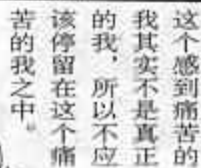 这个感到痛苦的
我其实不是真正
的我，所以不应
该停留在这个痛
苦的我之中。